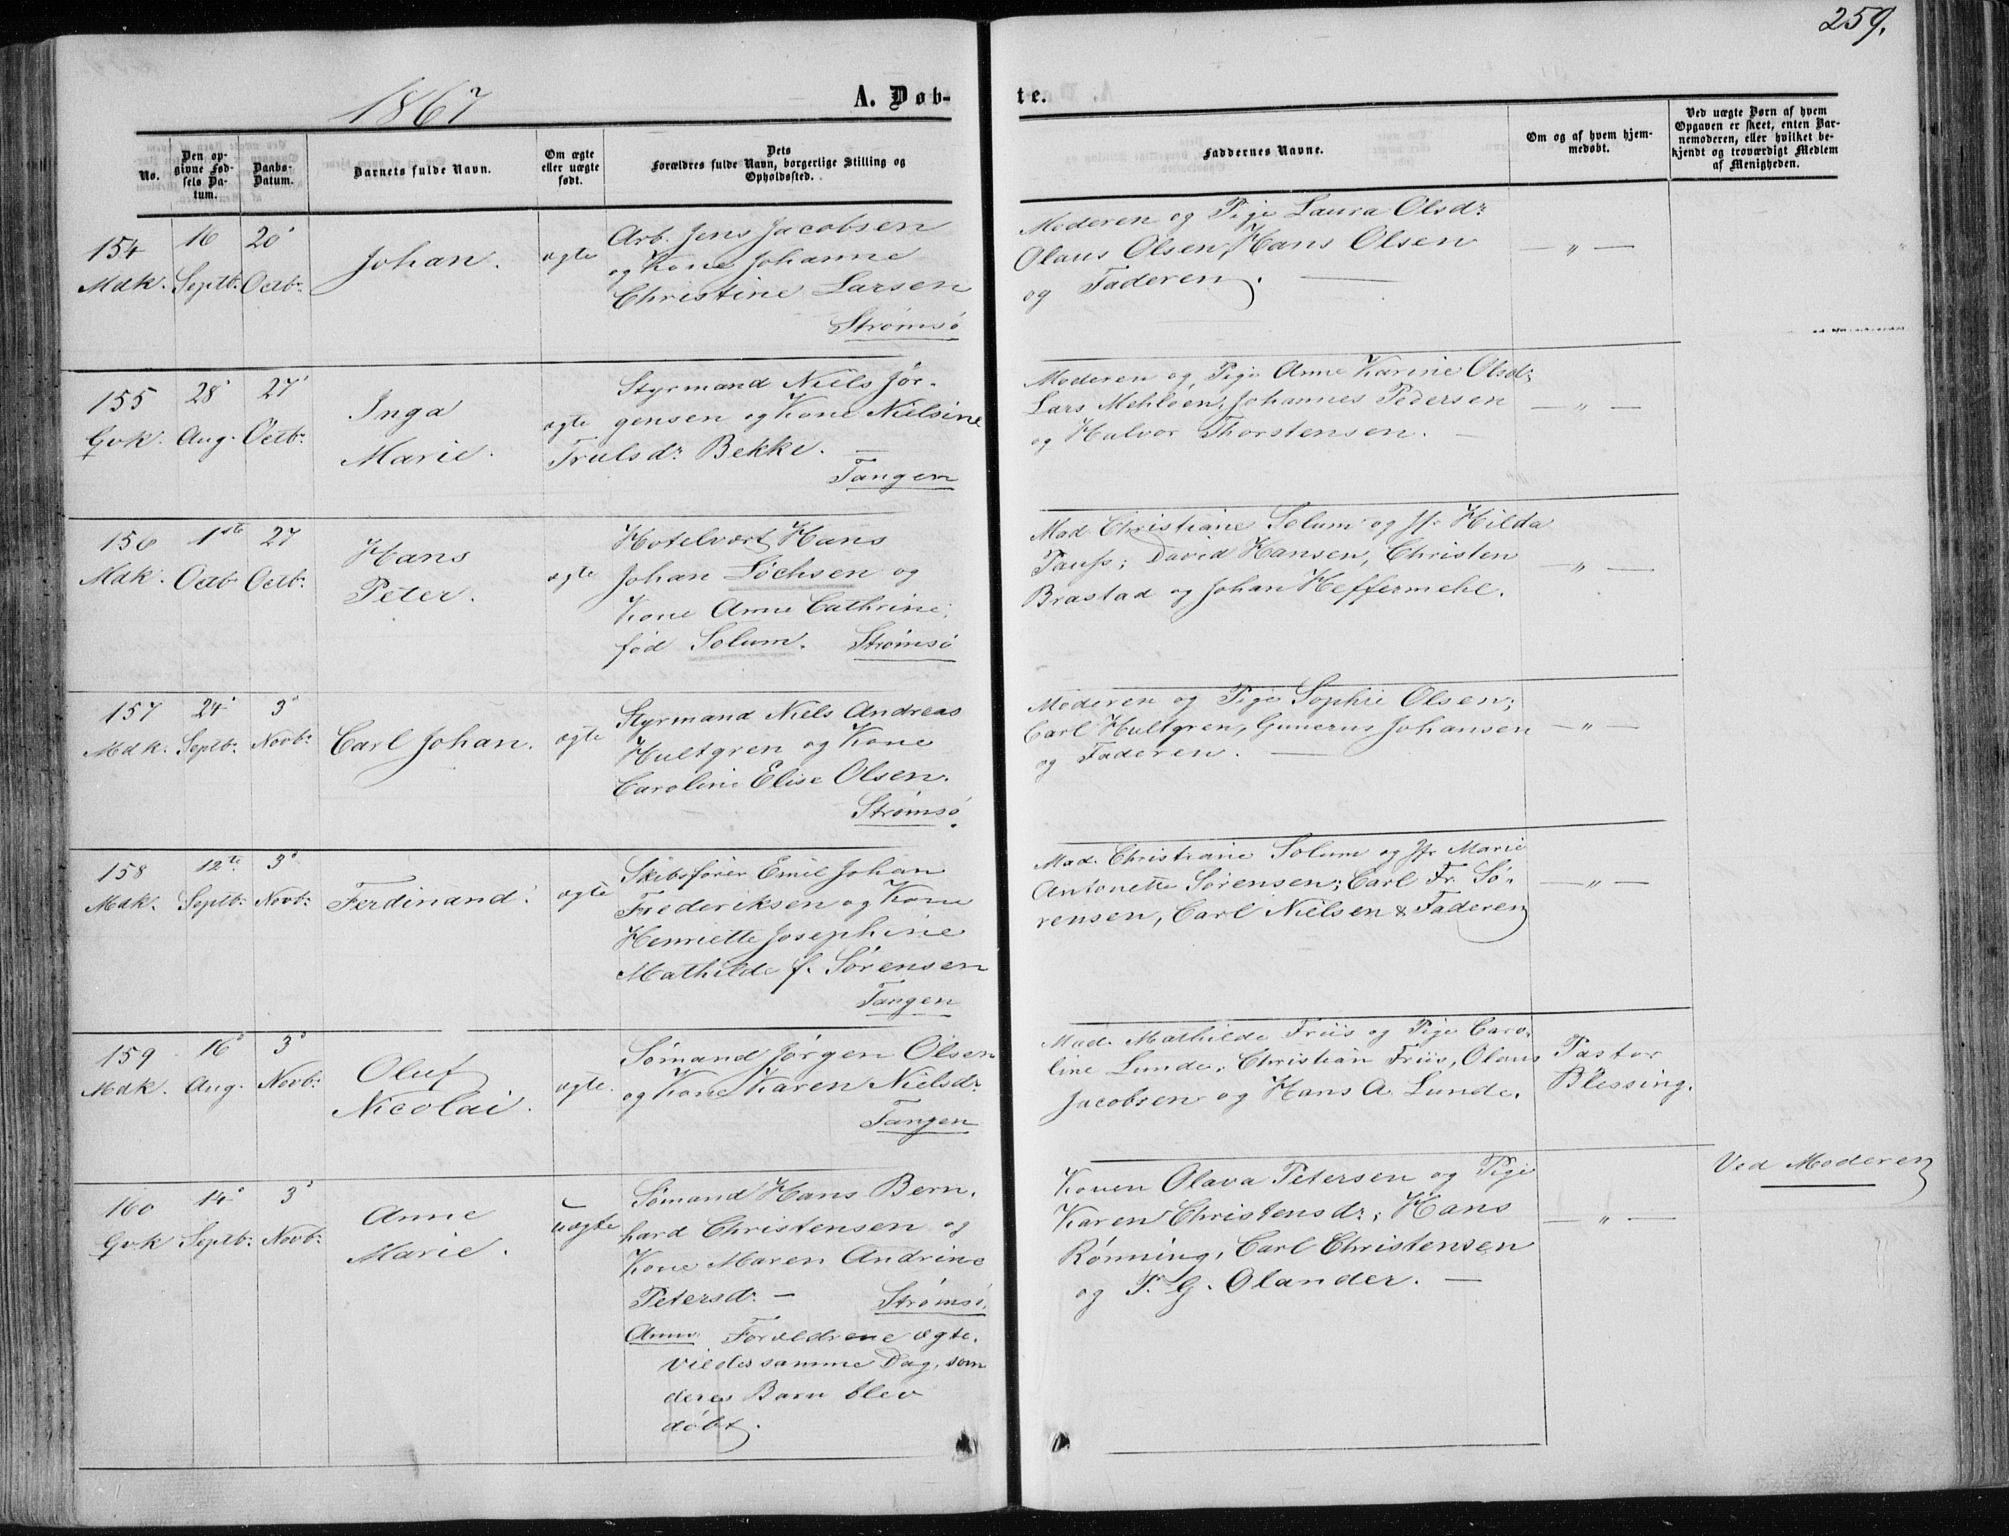 259.
1867
A. Døb-
te.
No.
Den op-
givne Fød-
sels Da-
tum.
Daabs-
Datum.
Barnets fulde Navn.
Om ægte
eller uægte
født.
Dets
Forældres fulde Navn, borgerlige Stilling og
Opholdssted.
Faddernes Navne.
Om og af hvem hjem-
medøbt.
Ved uægte Børn af hvem
Opgaven er skeet, enten Bar-
nemoderen, eller hvilket be-
kjendt og troværdigt Medlem
af Menigheden.
154
Mdk.
16
Septb.
20
Octbr.
Johan.
ægte
Arb. Jens Jacobsen
og Kone Johanne
Christine Larsen
Strømsø
Moderen og Pige Laura Olsdr.
Olaus Olsen, Hans Olsen
og Faderen.
— " —
155
Qvk.
28
Aug.
27
Octbr.
Inga
Marie.
ægte
Styrmand Niels Jør-
gensen og Kone Nielsine
Trulsdr. Bekke.
Tangen
Moderen og Pige Anne Karine Olsdr.
Lars Mehloen, Johannes Pedersen
og Halvor Thorstensen.
— " —
156
Mdk.
1ste
Octb
27
Octbr.
Hans
Peter.
ægte
Hotelvært Hans
Johan Lochsen og
Kone Anne Cathrine
fød Solum. Strømsø
Mad. Christiane Solum og Jfr Hilda
Pauss; David Hansen, Christen
Brastad og Johan Heffermehl.
— " —
157
Mdk.
24
Septbr.
3
Novbr.
Carl Johan.
ægte
Styrmand Niels Andreas
Hultgren og Kone
Caroline Elise Olsen.
Strømsø
Moderen og Pige Sophie Olsen;
Carl Hultgren, Gunerus Johansen
og Faderen.
— " —
158
Mdk.
12te
Septbr.
3
Novbr.
Ferdinand.
ægte
Skibsfører Emil Johan
Frederiksen og Kone
Henriette Josephine
Mathilde f. Sørensen
Tangen
Mad. Christiane Solum og Jfr Marie
Antonette Sørensen; Carl Fr. Sø-
rensen, Carl Nielsen & Faderen
— " —
159
Mdk.
16
Aug.
3
Novbr.
Oluf
Nicolai.
ægte.
Sømand Jørgen Olsen
og Kone Karen Nielsdr.
Tangen
Mad. Mathilde Friis og Pige Caro-
line Lunde, Christian Friis, Olaus
Jacobsen og Hans A. Lunde.
Pastor
Blessing.
160
Qvk
14
Septbr.
3
Novbr.
Anne
Marie.
uægte
Sømand Hans Bern-
hard Christensen og
Kone Maren Andrine
Petersdr. — Strømsø.
Anm. Forældrene ægte-
viedes samme Dag, som
deres Barn blev
døbt.
Konen Olava Petersen og Pige
Karen Christensdr.; Hans
Rønning, Carl Christensen
og P. G. Olander. —
— " —
Ved Moderen